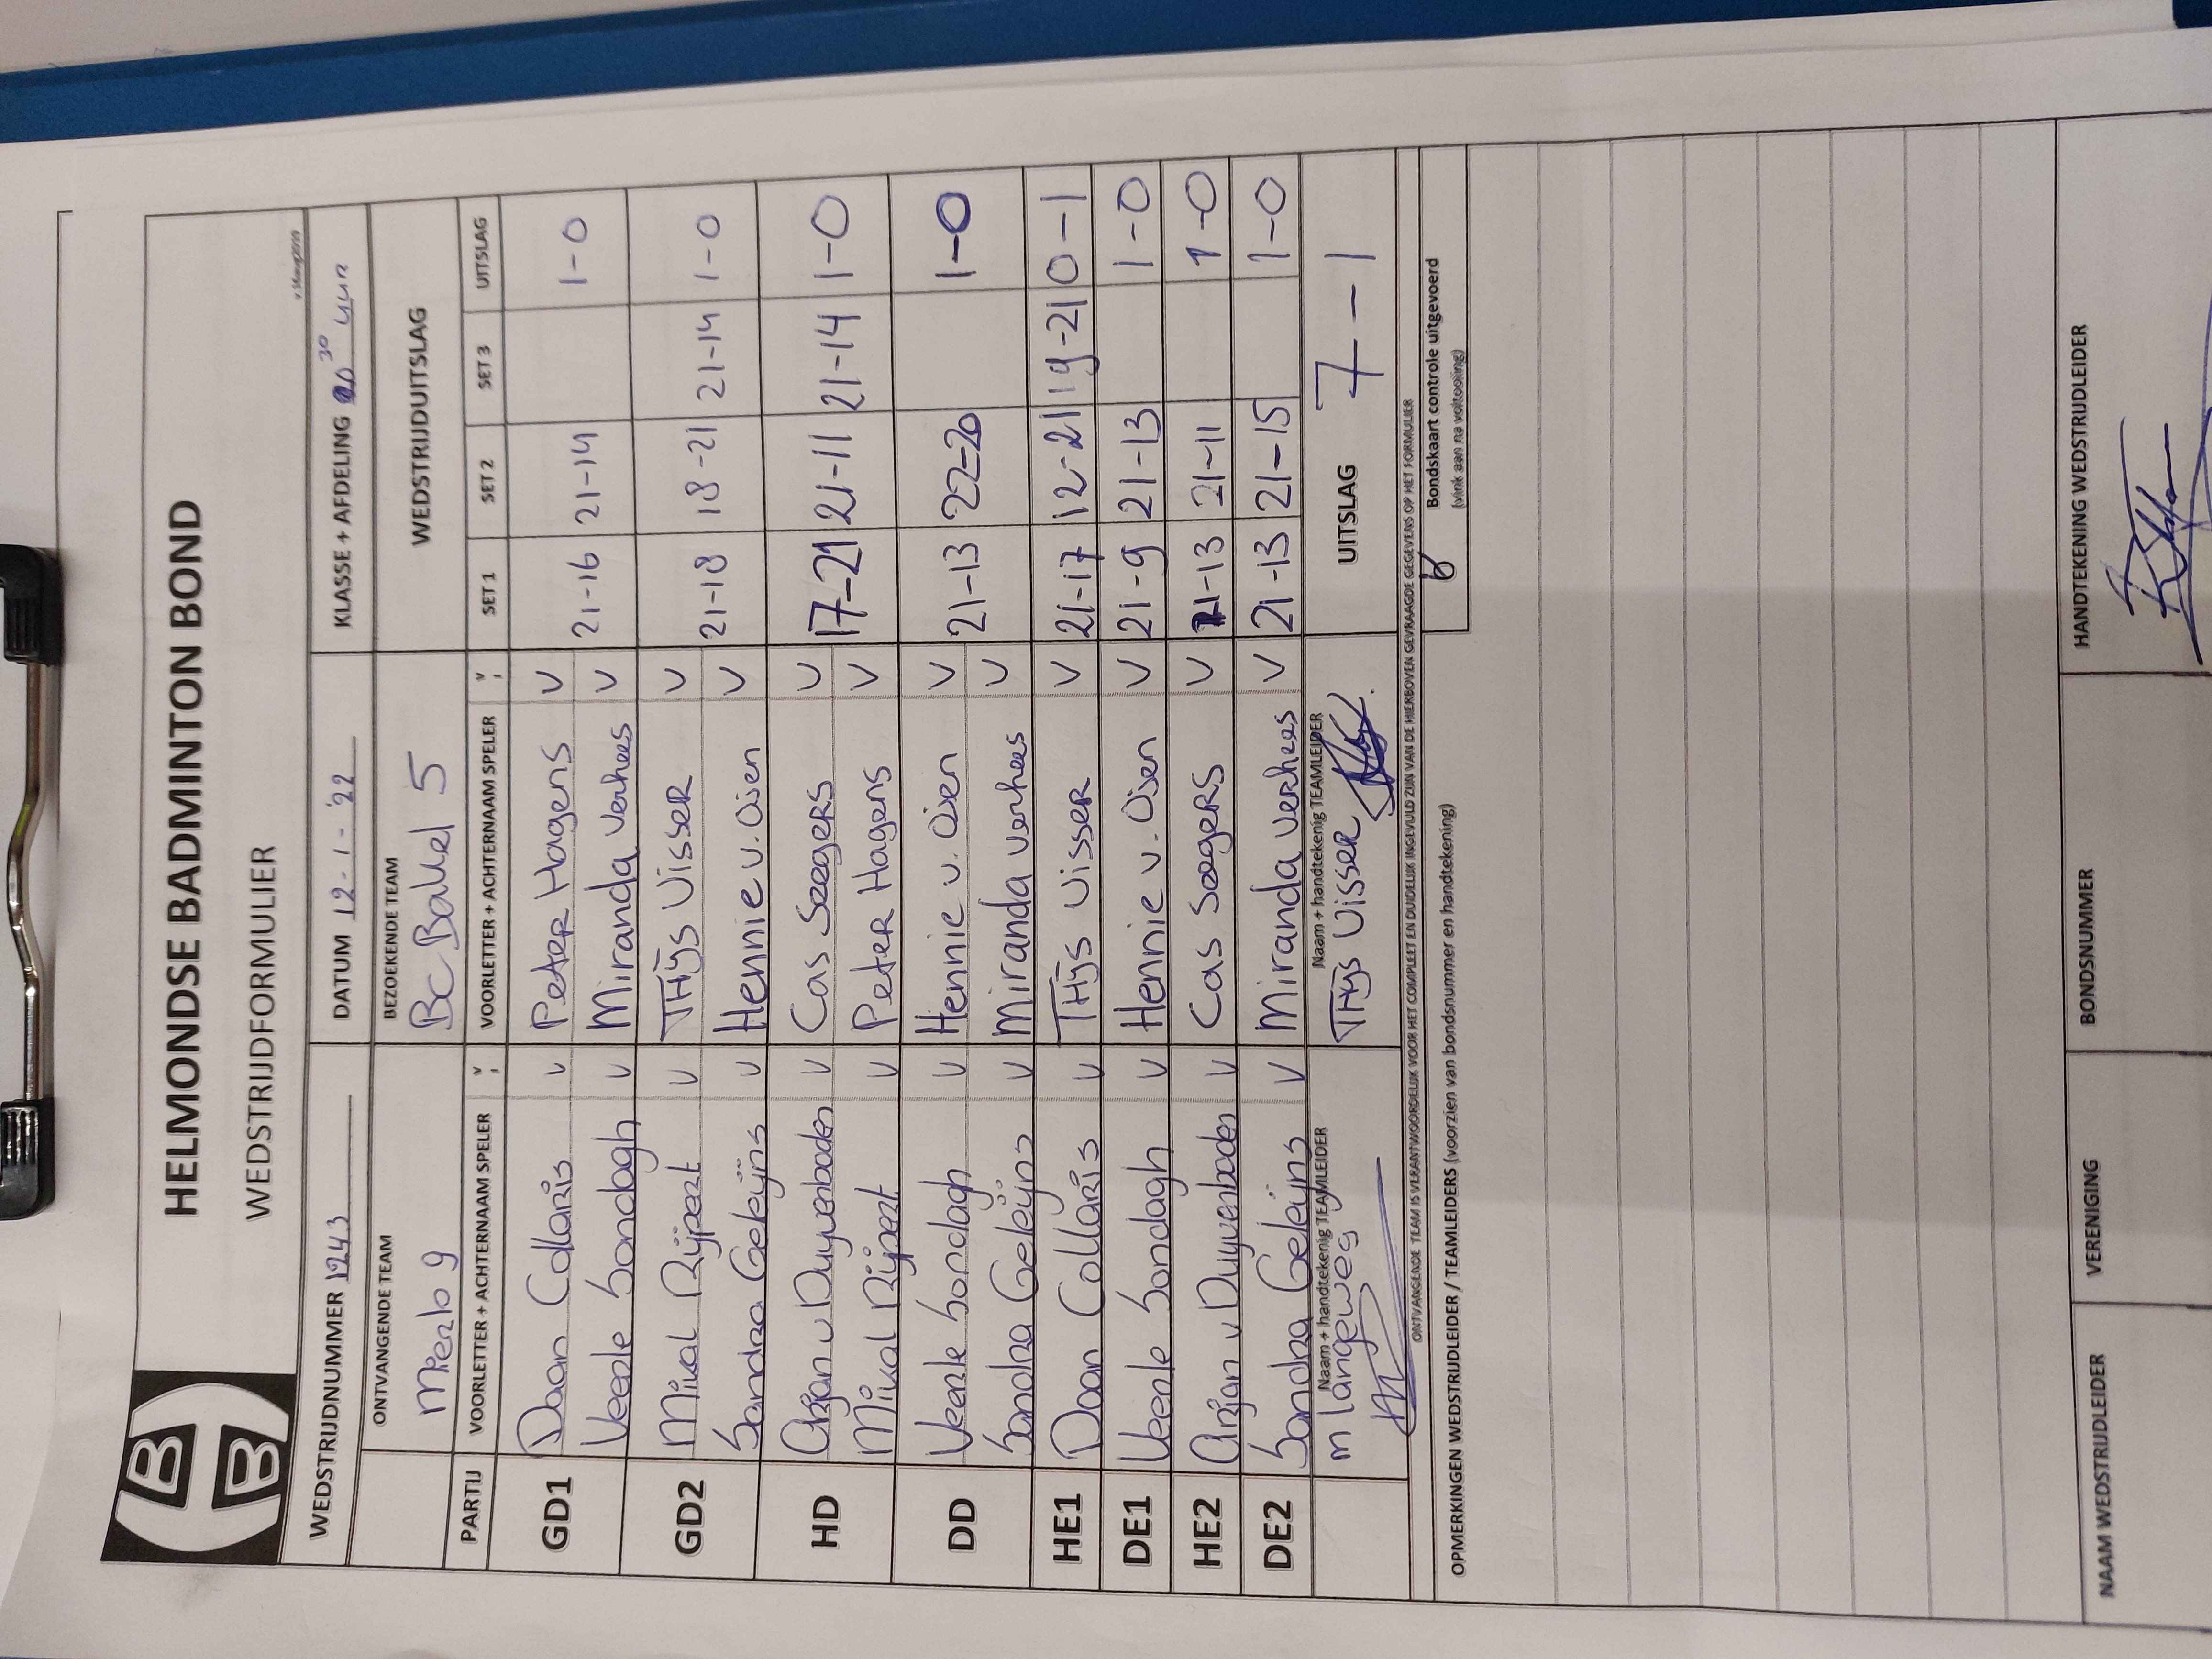 HELMONDSE BADMINTON BOND
WEDSTRIJDFORMULIER
WEDSTRIJDNUMMER 1243 DATUM 12-1-'22 KLASSE + AFDELING 30 uur
ONTVANGENDE TEAM BEZOEKENDE TEAM WEDSTRIJDUITSLAG
Mierlo 9 BC Bakel 5
PARTIJ VOORLETTER + ACHTERNAAM SPELER V VOORLETTER + ACHTERNAAM SPELER V SET 1 SET 2 SET 3 UITSLAG
GD1 Daan Collaris V Peter Hagens V 21-16 21-14 1-0
Veerle Sondagh V Miranda Verhees V
GD2 Mikal Rijpert V THijs Visser V 21-18 18-21 21-14 1-0
Sandra Geleijns V Hennie v. Osen V
HD Arjan v Duyvenboden V Cas Seegers V 17-21 21-11 21-14 1-0
Mikal Rijpert V Peter Hagens V
DD Veerle Sondagh V Hennie v. Osen V 21-13 22-20 1-0
Sandra Geleijns V Miranda Verhees V
HE1 Daan Collaris V THijs Visser V 21-17 12-21 19-21 0-1
DE1 Veerle Sondagh V Hennie v. Osen V 21-9 21-13 1-0
HE2 Arjan v Duyvenboden V Cas Seegers V 21-13 21-11 1-0
DE2 Sandra Geleijns V Miranda Verhees V 21-13 21-15 1-0
Naam + handtekenig TEAMLEIDER Naam + handtekenig TEAMLEIDER UITSLAG 7--1
M Langeweg THijs Visser
ONTVANGENDE TEAM IS VERANTWOORDELIJK VOOR HET COMPLEET EN DUIDELIJK INGEVULD ZIJN VAN DE HIERBOVEN GEVRAAGDE GEGEVENS OP HET FORMULIER
OPMERKINGEN WEDSTRIJDLEIDER / TEAMLEIDERS (voorzien van bondsnummer en handtekening) Bondskaart controle uitgevoerd
(vink aan na voltooiing)
NAAM WEDSTRIJDLEIDER VERENIGING BONDSNUMMER HANDTEKENING WEDSTRIJDLEIDER